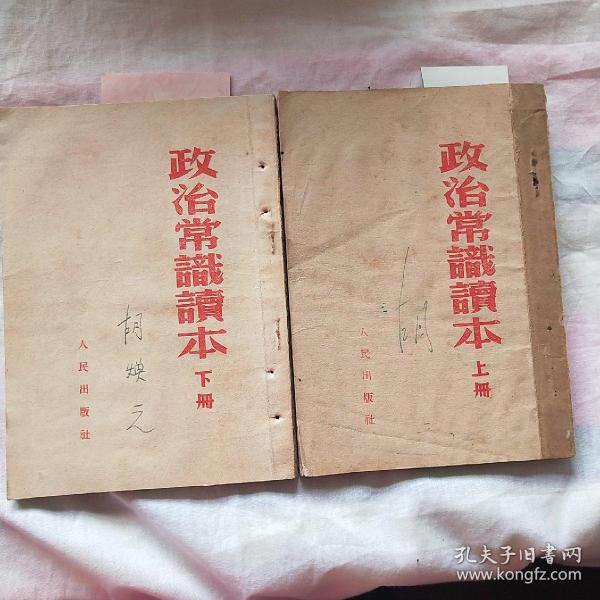 政治常識讀本
下册
人民出版社
胡煐元
政治常識讀本
上册
人民出版社
胡
孔夫子旧书网
www.kongfz.com